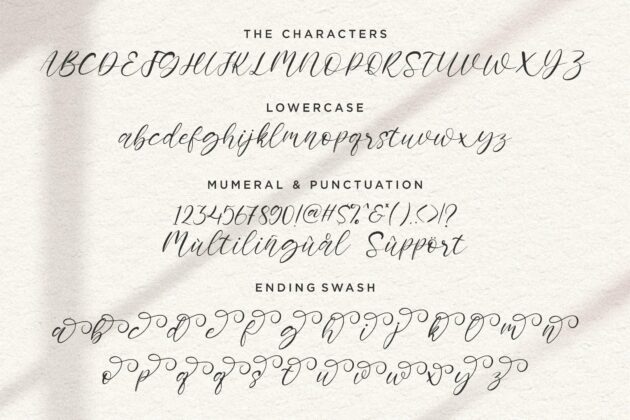 THE CHARACTERS
ABCDEFGHIJKLMNOPQRSTUVWXYZ
LOWERCASE
abcdefghijklmnopqrstuvwxyz
MUMERAL & PUNCTUATION
1234567890!@#$%^&*(.).<>|?
Multilingùål Sùppört
ENDING SWASH
a b c d e f g h i j k l m n
o p q q s t u v w x y z